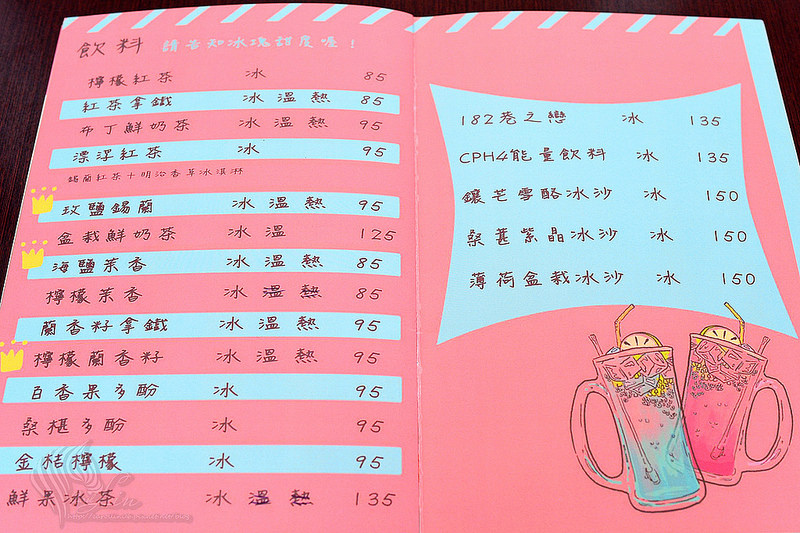 飲料 請告知冰塊甜度喔!
檸檬紅茶 冰 85
紅茶拿鐵 冰 溫 熱 85
布丁鮮奶茶 冰 溫 熱 95
漂浮紅茶 冰 95
錫蘭紅茶+明治香草冰淇淋
玫鹽錫蘭 冰 溫 熱 95
盆栽鮮奶茶 冰 溫 125
海鹽茉香 冰 溫 熱 85
檸檬茉香 冰 溫 熱 85
蘭香籽拿鐵 冰 溫 熱 95
檸檬蘭香籽 冰 溫 熱 95
百香果多酚 冰 95
桑椹多酚 冰 95
金桔檸檬 冰 95
鮮果冰茶 冰 溫 熱 135
182巷之戀 冰 135
CPH4能量飲料 冰 135
鑲芒雪酪冰沙 冰 150
桑葚紫晶冰沙 冰 150
薄荷盆栽冰沙 冰 150